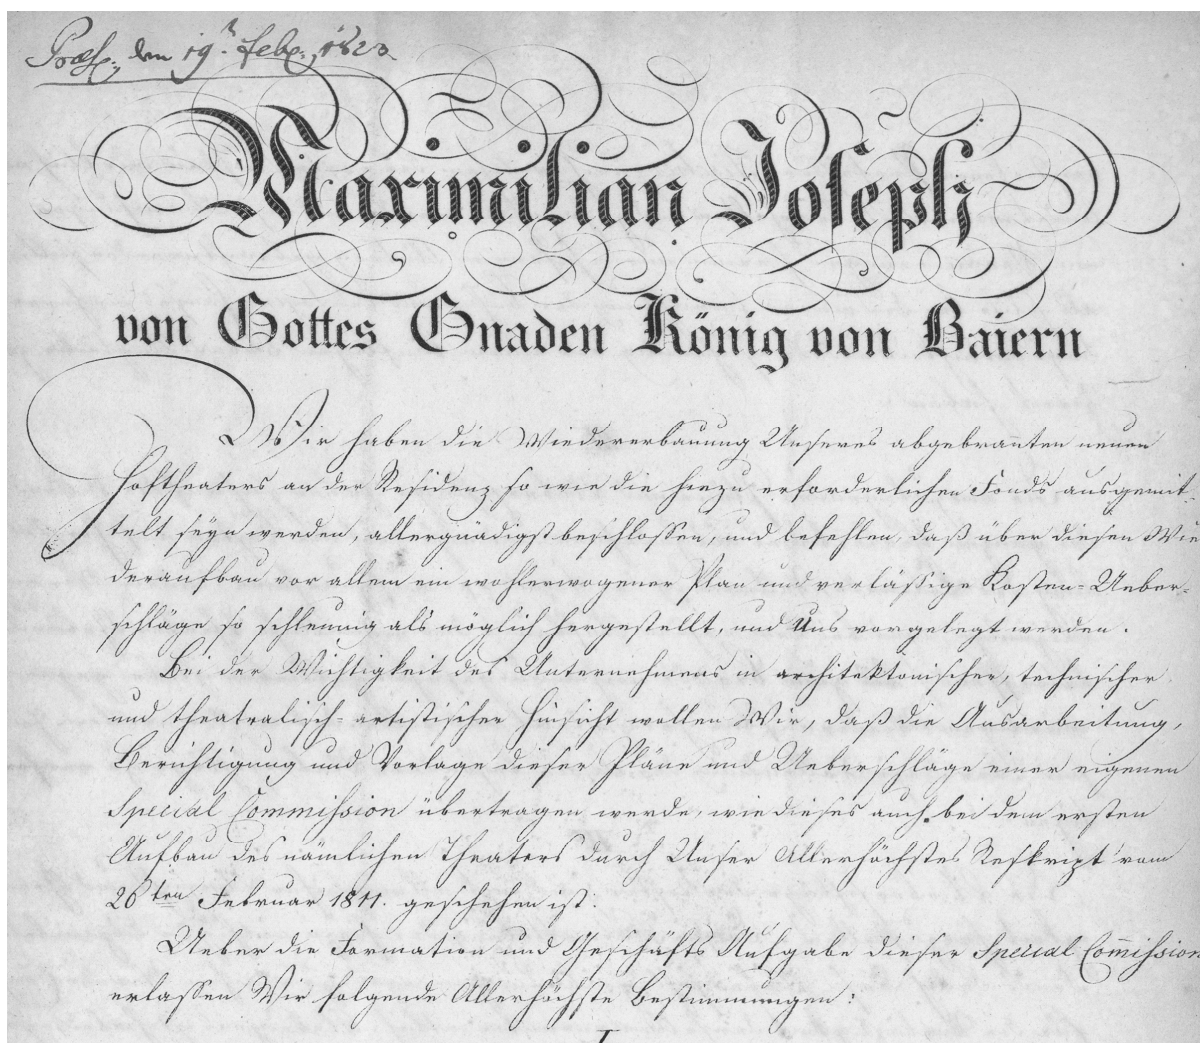 Præs. den 19.n Febr. 1823
Maximilian Joseph
von Gottes Gnaden König von Baiern
Wir haben die Wiedererbauung Unseres abgebrañten neuen
Hoftheaters an der Residenz so wie die hiezu erforderlichen Fonds ausgemit-
telt seyn werden, allergnädigst beschlossen, und befehlen, daß über diesen Wie
deraufbau vor allem ein wohlerwogener Plan und verläßige Kosten-Ueber-
schläge so schleunig als möglich hergestellt, und Uns vorgelegt werden.
Bei der Wichtigkeit des Unternehmens in architektonischer, technischer,
und theatralisch-artistischer Hinsicht wollen Wir, daß die Ausarbeitung,
Berichtigung und Vorlage dieser Pläne und Ueberschläge einer eigenen
Special Commission übertragen werde, wie dieses auch bei dem ersten
Aufbau des nämlichen Theaters durch Unser Allerhöchstes Reskript vom
26ten Februar 1811. geschehen ist.
Ueber die Formation und Geschäfts Aufgabe dieser Special Com̃ission
erlassen Wir folgende Allerhöchste Bestimmungen:
I